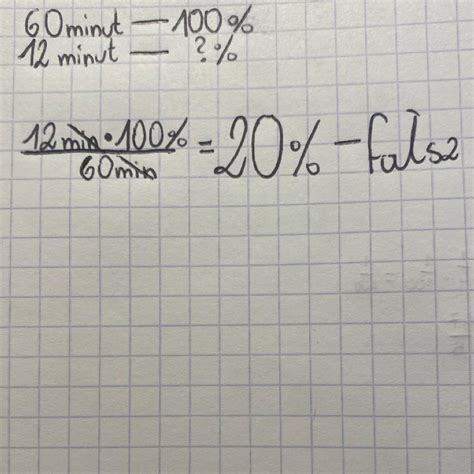 60 minut — 100%
12 minut — ?%
12 min · 100% / 60 min = 20% - fałsz